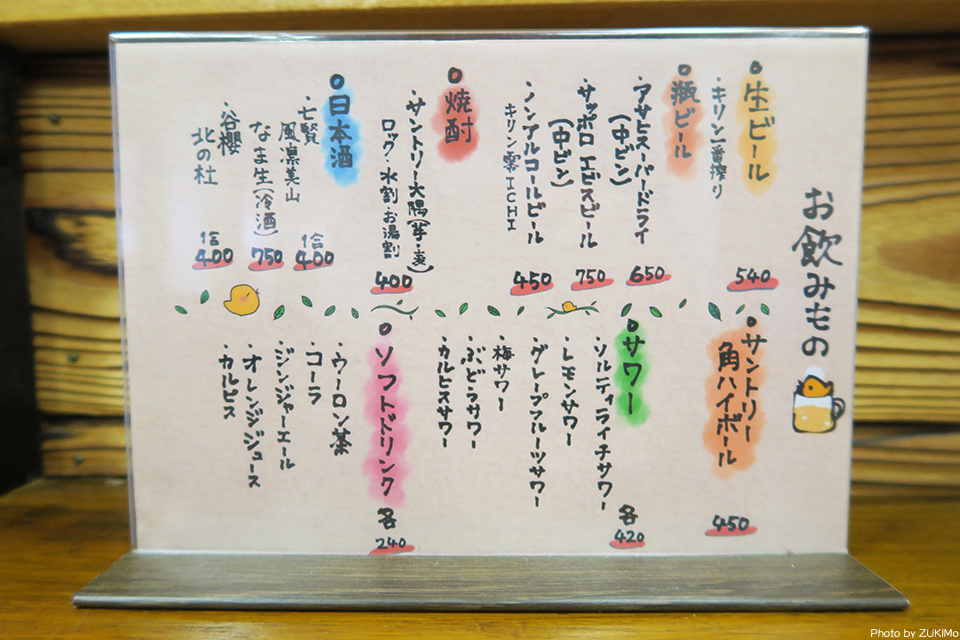 お飲みもの
生ビール
・キリン一番搾り
540
瓶ビール
・アサヒスーパードライ
(中ビン)
650
・サッポロ エビスビール
(中ビン)
750
・ノンアルコールビール
キリン零ICHI
450
焼酎
・サントリー大隅(芋・麦)
ロック・水割・お湯割
400
日本酒
・七賢
風凛美山
1合
400
なま生(冷酒)
750
・谷櫻
北の杜
1合
400
サントリー
角ハイボール
450
サワー
各
420
・ソルティライチサワー
・レモンサワー
・グレープフルーツサワー
・梅サワー
・ぶどうサワー
・カルピスサワー
ソフトドリンク
各
240
・ウーロン茶
・コーラ
・ジンジャーエール
・オレンジジュース
・カルピス
Photo by ZUKIMo